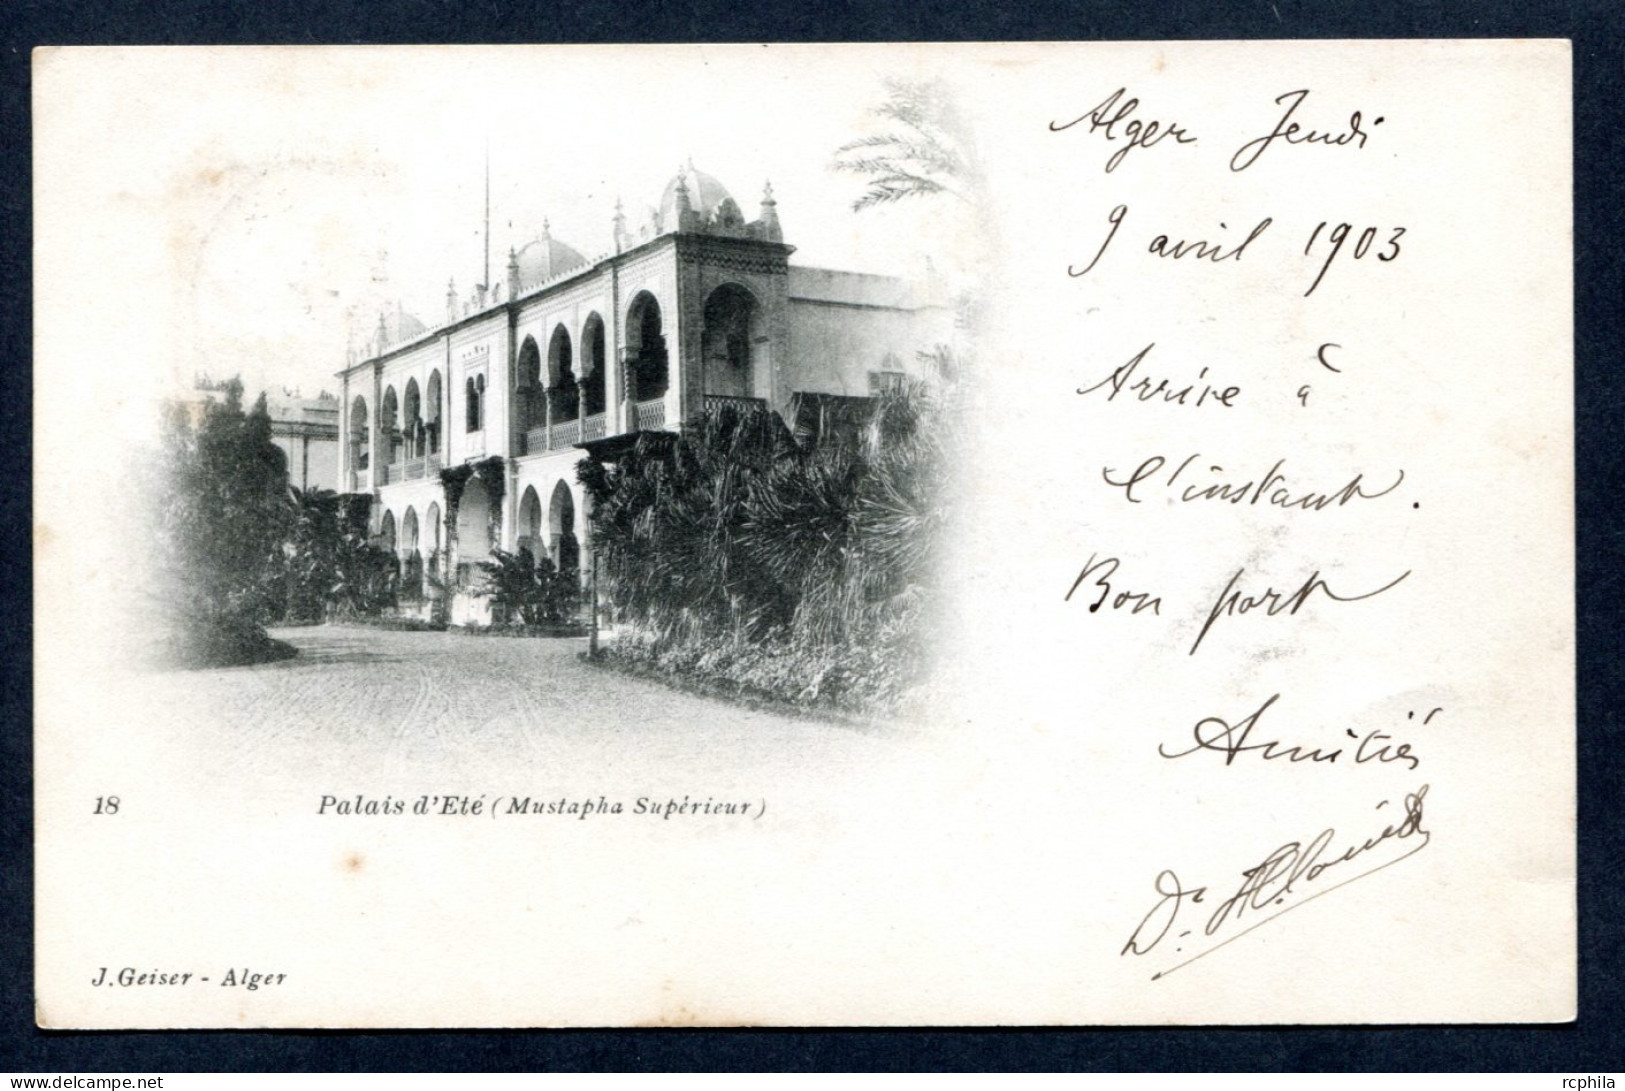 Alger Jeudi
9 avril 1903
Arrive à
l'instant.
Bon port
Amitiés
Dr.
18
Palais d'Eté (Mustapha Supérieur)
J. Geiser - Alger
delcampe.net
rcphila